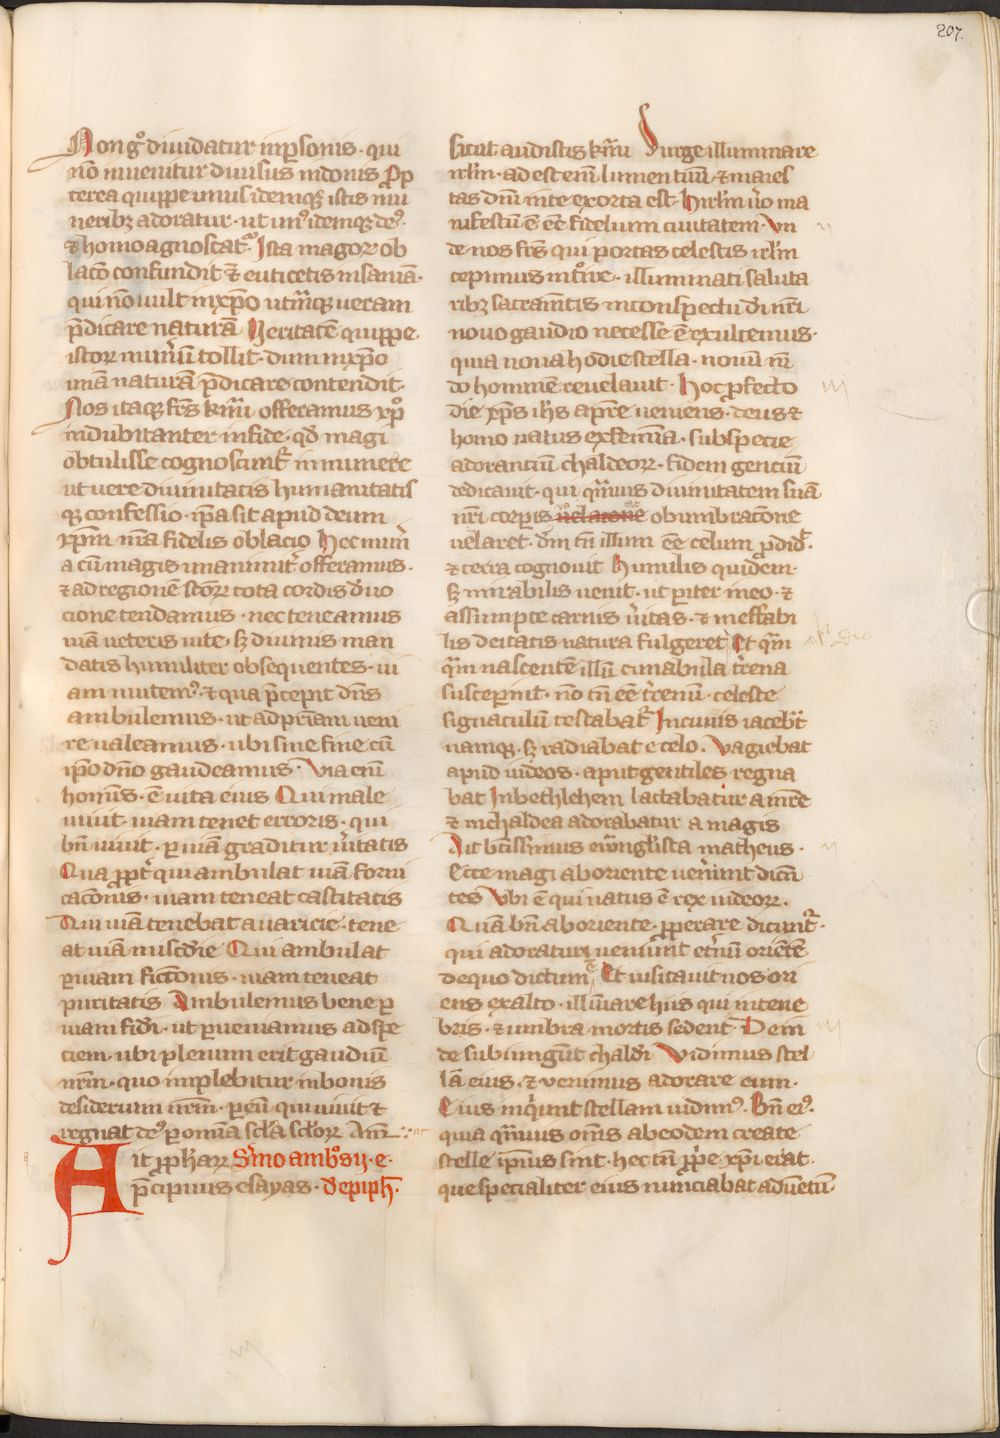 207.
Non gͦ diuidatur in ꝑsonis · qui
nō inuenitur diuisus in donis Pp
terea quippe unus idemqꝫ istis mu
neribꝫ adoratur · ut unꝰ idemqꝫ deꝰ
⁊ homo agnoscatͬ Ista magoꝝ ob
lacō confundit ⁊ euticetis insaniā ·
qui nō uult in xp̄o utrāqꝫ ueram
p̄dicare naturā Veritatē quippe
istoꝝ mun̄um tollit · dum in xp̄o
unā naturā p̄dicare contendit ·
Nos itaqꝫ fr̄s kr̄mi offeramus xp̄o
indubitanter in fide · qd̄ magi
obtulisse cognoscuntͬ in munere
ut uere diuinitatis humanitatis
qꝫ confessio · ip̄a sit apud deum
xp̄m nr̄a fidelis oblacio Hec mun̄
a cū magis unanimitͬ offeramus ·
⁊ ad regionē sc̄oꝝ tota cordis d̓uo
cione tendamus · nec teneamus
uiā ueteris uite · sꝫ diuinis man
datis humiliter obsequentes · ui
am mutemꝰ · ⁊ qua p̄cepit dn̄s
ambulemus · ut ad pr̄iam ueni
re ualeamus · ubi sine fine cū
ip̄o dn̄o gaudeamus · Via eni
homīs · ē uita eius Qui male
uiuit · uiam tenet erroris · qui
bn̄ uiuit · ꝑ uiā graditur ūitatis
Qua ꝓpt̄ qui ambulat uiā forni
cacōnis · uiam teneat castitatis
Qui uiā tenebat auaricie · tene
at uiā misc̄die Qui ambulat
ꝑ uiam fictionis · uiam teneat
puritatis Ambulemus bene ꝑ
uiam fid̓i · ut ꝑueniamus ad spe
ciem · ubi plenum erit gaudiū
nr̄m · quo implebitur in bonis
desiderium nr̄m · ꝑ eū qui uiuit ⁊
regnat deꝰ ꝑ om̄ia sc̄la sc̄loꝝ Am̄ ·
Ait ꝓphaꝝ Sīmo ambͦsij · e ·
p̄cipuus esayas · d̓ epiph̄ ·
sicut audistis kr̄mi Surge illuminare
irl̄m · ad est eni lumen tuū · ⁊ maies
tas dn̄i in te exorta est · Hirl̄m ūo ma
nifestū ē eē fidelium ciuitatem · Vn
de nos fr̄s qui portas celestis irl̄m
cepimus intͦire · illuminati saluta
ribꝫ sacram̄tis in conspectu dn̄i nr̄i
nouo gaudio necesse ē exultemus ·
quia noua hodie stella · nouū m̄
do hominē reuelauit · Hoc ꝓfecto
die xp̄s ih̄s a pr̄e ueniens · deus ⁊
homo natus ex femina · sub specie
adorantiū chaldeoꝝ · fidem gentiū
dedicauit · qui q̄muis diuinitatem suā
nr̄i corꝑis uelacione obumbracōne
uelaret · dm̄ tn̄ illum eē celum ꝓdidͭ ·
⁊ terra cognouit Humilis quidem ·
sꝫ mirabilis uenit · ut ꝑiter in eo · ⁊
assumpte carnis ūitas · ⁊ ineffabi
lis deitatis natura fulgeret Et q̄m
q̄m nascentē illū cunabula t̄rena
susceperunt · nō tn̄ eē t̄renū · celeste
signaculū testabatͬ In cunis iacebat
namqꝫ · sꝫ radiabat e celo · Vagiebat
apud iudeos · aput gentiles regna
bat In bethlehem lactabatur a mr̄e
⁊ in chaldea adorabatur a magis
Ait bt̄issimus ewangl̓ista matheus ·
Ecce magi ab oriente ueneūnt dicn̄
tes Vbi ē qui natus ē rex iudeoꝝ ·
Quā bn̄ ab oriente · ꝓperare dicuntͬ ·
qui adoraturi ueniūnt et̄nū orientē
de quo dictum ē Et uisitauit nos ori
ens ex alto · illūiare hiis qui in tene
bris · ⁊ umbra mortis sedent Dein
de subiungūt chald̓i Vidimus stel
lā eius · ⁊ uenimus adorare eum ·
Eius inquiunt stellam uidimꝰ · Bn̄ eiꝰ ·
quia q̄muis om̄s ab eodem create
stelle ip̄ius sint · hec tn̄ ꝓp̄e xp̄i erat ·
que specialiter eius nunciabat aduentū ·